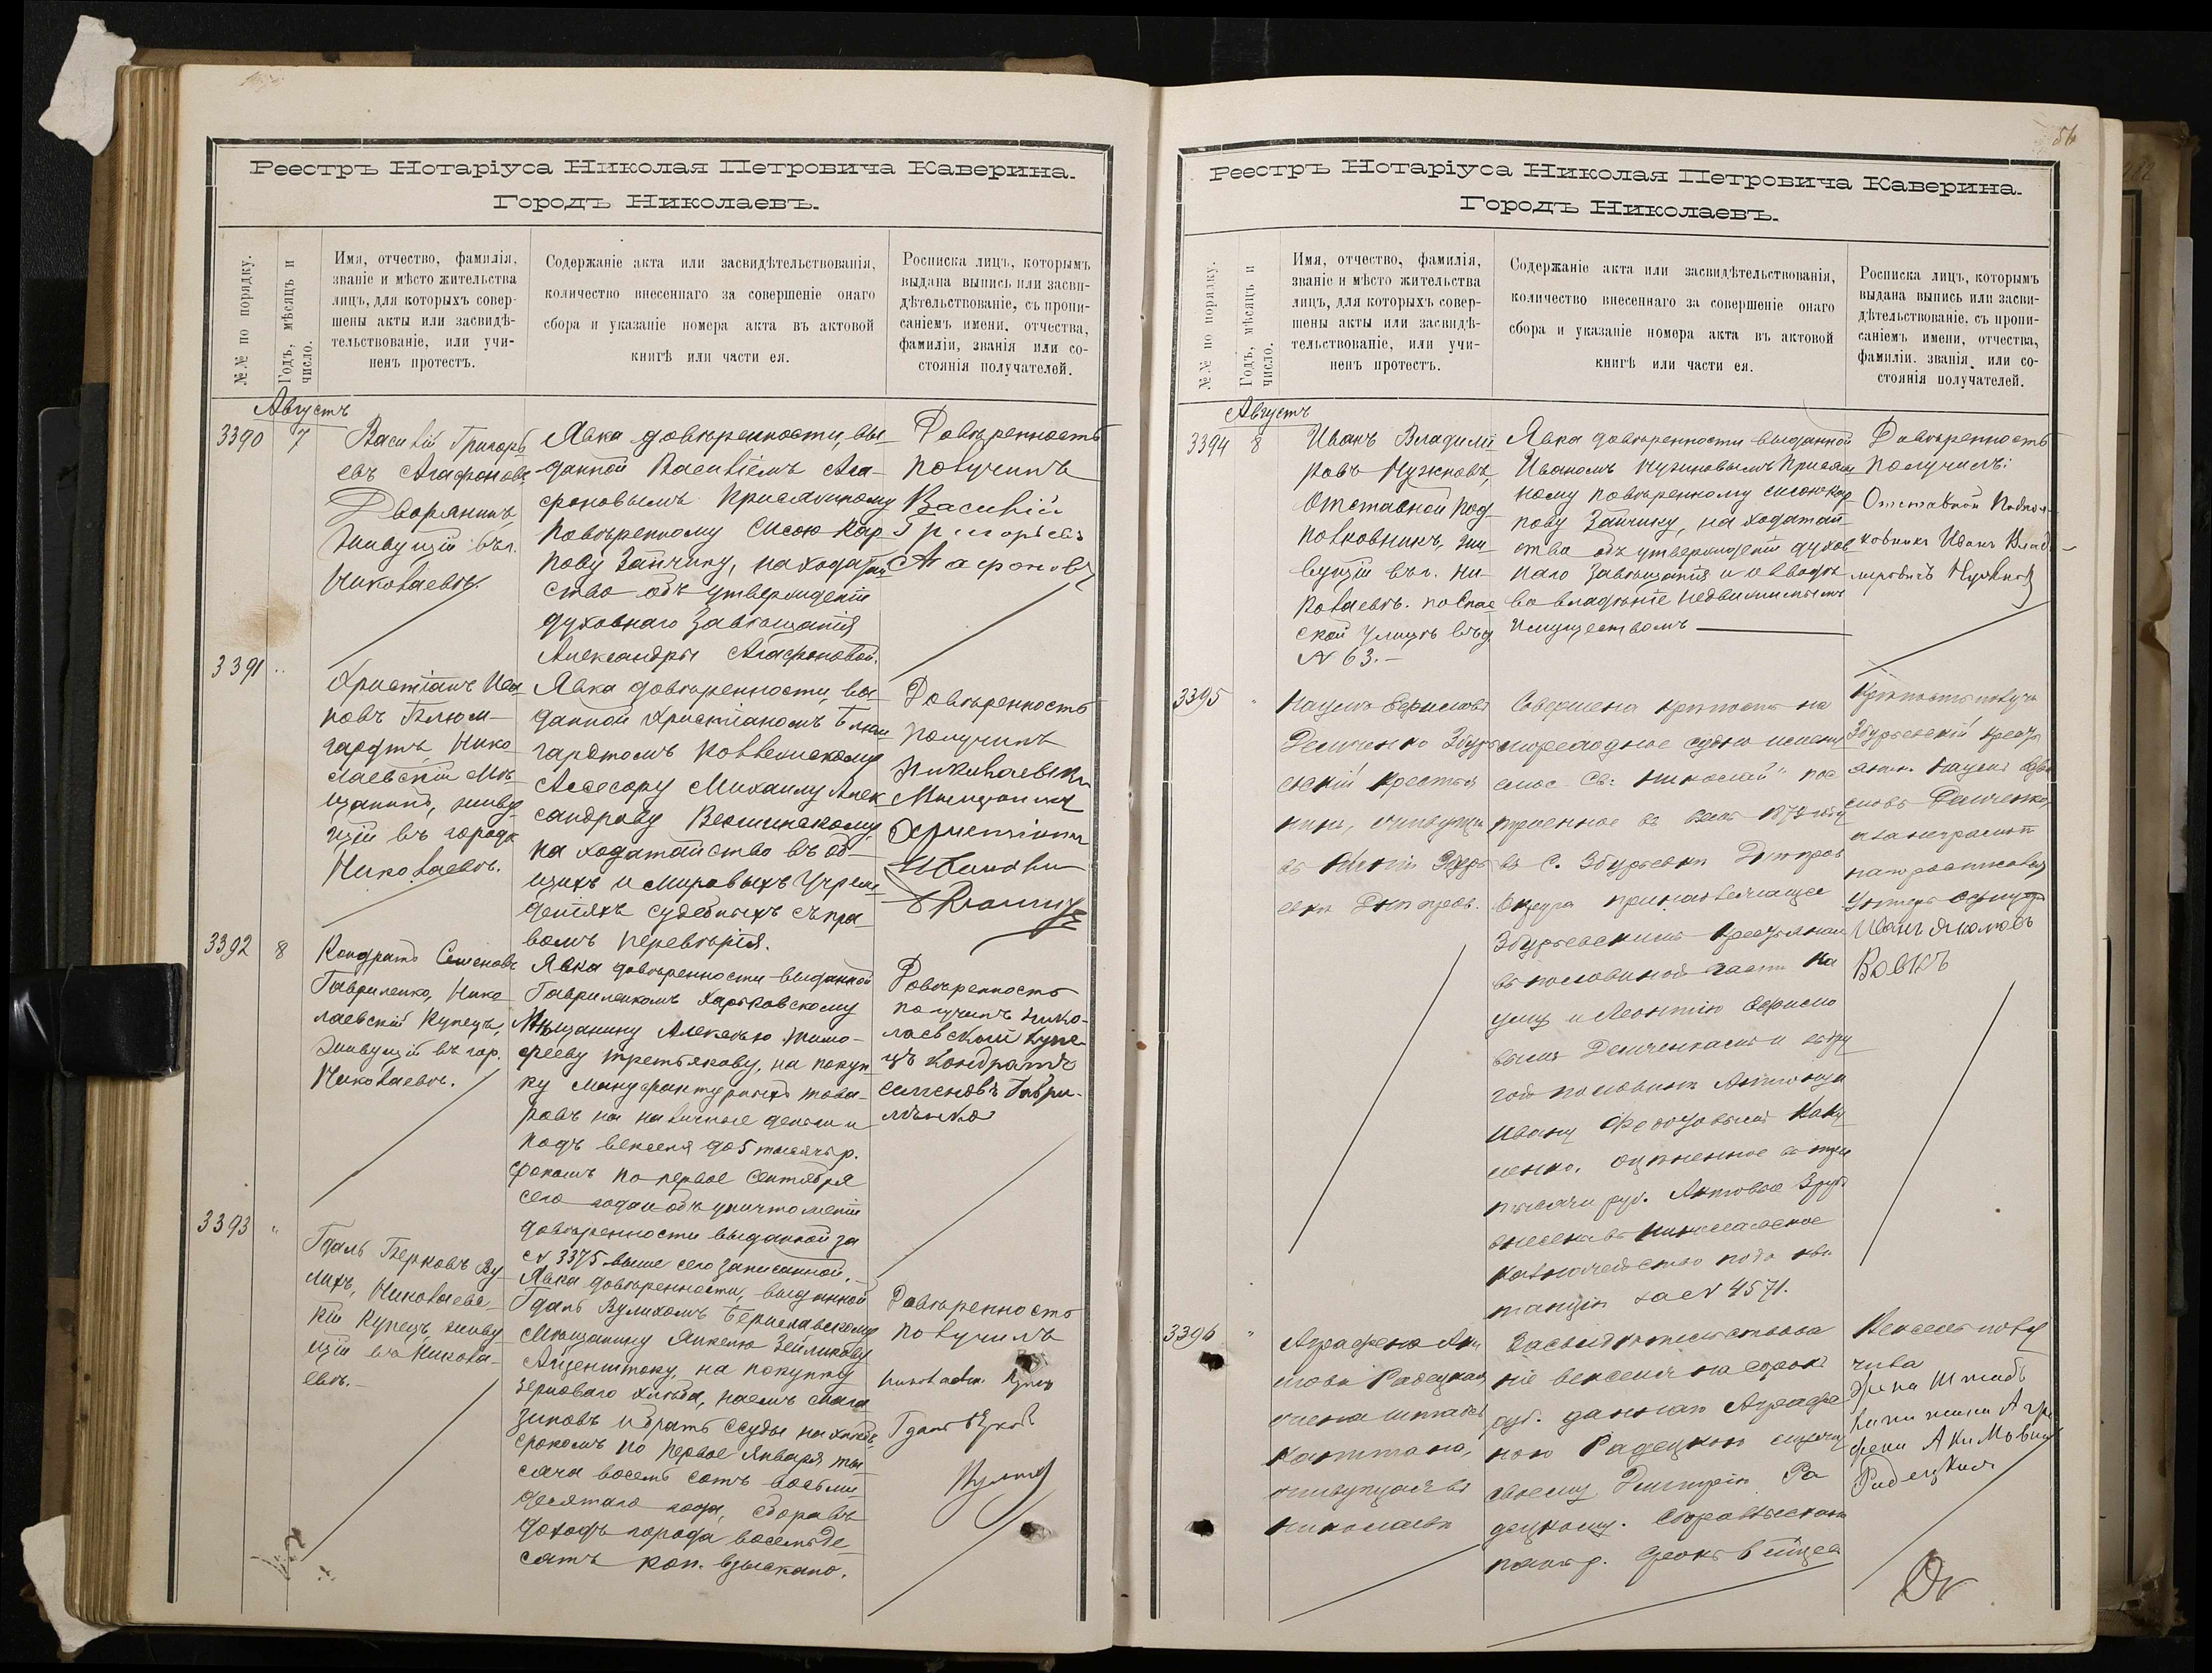 Реестръ Нотаріуса Николая Петровича Каверина.
Городъ Николаевъ.
№№ по порядку.
Годъ, мѣсяцъ и
число.
Имя, отчество, фамилія,
званіе и мѣсто жительства
лицъ, для которыхъ совер-
шены акты или засвидѣ-
тельствованіе, или учи-
ненъ протестъ.
Содержаніе акта или засвидѣтельствованія,
количество внесеннаго за совершеніе онаго
сбора и указаніе номера акта въ актовой
книгѣ или части ея.
Росписка лицъ, которымъ
выдана выпись или засви-
дѣтельствованіе, съ пропи-
саніемъ имени, отчества,
фамиліи, званія или со-
стоянія получателей.
Августъ
3390
7
Василій Григорь
евъ Агафоновъ,
Дворянинъ,
живущій въ г.
Николаевѣ.
Явка довѣренности, вы-
данной Василіемъ Ага-
фоновымъ Присяжному
Повѣренному Сысою Кар-
пову Зайчину, на ходатай-
ство объ утвержденіи
духовнаго завѣщанія
Александры Агафоновой.
Довѣренность
получилъ
Василій
Григорьевъ
Агафоновъ
3391
Христіанъ Ива-
новъ Блюм-
гардтъ, Нико
лаевскій Мѣ-
щанинъ, живу
щій въ городѣ
Николаевѣ.
Явка довѣренности, вы-
данной Христіаномъ Блюм
гардтомъ Коллежскому
Асессору Михаилу Алек
сандрову
на ходатайство въ об-
щихъ и Мировыхъ Учреж-
деніяхъ судебныхъ съ пра-
вомъ перевѣрія.
Довѣренность
получилъ
Николаевскій
Мѣщанинъ
Христіанъ
Ивановъ
3392
8
Кондратъ Семеновъ
Гавриленко, Нико
лаевскій Купецъ,
живущій въ гор.
Николаевѣ.
Явка довѣренности выданной
Гавриленкомъ Харьковскому
Мѣщанину Алексѣю Тимо-
фееву Третьякову, на покуп
ку мануфактурныхъ това-
ровъ на наличные деньги и
подъ векселя до 5 тысячъ р.
срокомъ по первое Сентября
сего года и объ уничтоженіи
довѣренности выданной за
№ 3375 выше сего записанной.
Довѣренность
получилъ Нико-
лаевский Купе-
цъ Кондратъ
Семеновъ Гаври-
ленко
3393
"
Гдаль Берковъ Ву
лихъ, Николаевс
кій Купецъ, живу
щій въ Никола-
евѣ.
Явка довѣренности, выданной
Гдаль Вулихомъ Бериславскому
Мѣщанину Янкелю Зейликову
Айзенштоку, на покупку
зерноваго хлѣба, наемъ мага
зиновъ и брать ссуды на хлѣбъ,
срокомъ по первое Января ты
сяча восемь сотъ восьми
десятаго года, сборавъ
доходъ города восемьде
сятъ коп. взыскано.
Довѣренность
получилъ
Николаев. Купец
Гдаль Берков
Вулихъ
56
Реестръ Нотаріуса Николая Петровича Каверина.
Городъ Николаевъ.
№№ по порядку.
Годъ, мѣсяцъ и
число.
Имя, отчество, фамилія,
званіе и мѣсто жительства
лицъ, для которыхъ совер-
шены акты или засвидѣ-
тельствованіе, или учи-
ненъ протестъ.
Содержаніе акта или засвидѣтельствованія,
количество внесеннаго за совершеніе онаго
сбора и указаніе номера акта въ актовой
книгѣ или части ея.
Росписка лицъ, которымъ
выдана выпись или засви-
дѣтельствованіе, съ пропи-
саніемъ имени, отчества,
фамиліи, званія или со-
стоянія получателей.
Августъ
3394
8
Иванъ Владими
ровъ Нужновъ,
Отставной Под
полковникъ, жи
вущій въ г. Ни-
колаевѣ. по Спас
ской улицѣ въ д
№ 63.-
Явка довѣренности выданной
Иваномъ Нужновымъ Присяж
ному Повѣренному Сысою Кар
пову Зайчину, на ходатай
ство объ утвержденіи духов
наго завѣщанія и о вводѣ
во владѣніе недвижимымъ
Имуществомъ
Довѣренность
получилъ:
Отставной Подпол-
ковникъ Иванъ Влади-
мировичъ Нужновъ
3395
"
Наумъ Ефимовъ
Демченко Збурь
евскій Крестья
нинъ, живущій
въ Збурь
евкѣ Днѣпров.
Совершена крѣпость на
мореходное судно именуе
емое Св: Николай" пос
троенное въ 1874 году
въ С. Збурьевкѣ Днѣпров
Уѣзда принадлежащее
Збурьевскимъ Крестьянам
въ половиной части На
уму и Леонтію Ефимо
вымъ Демченкамъ и въ дру
гой половинѣ
Ивану Федотовымъ
оцѣненное въ три
тысячи руб. Актовые 3 руб.
внесены въ Николаевское
Казначейство подъ кви
танцію за № 4571.
Крѣпость получ
Збурьевскій Кресть
янин. Наумъ Ефи
мовъ Демченко,
а за неграмотн
Унтеръ Офицеръ
Иванъ Яковлевъ
Вовкъ
3396
"
Аграфена Аки
мова Радецкая,
жена Штабсъ
Капитана,
живущая въ
Николаевѣ
Засвидѣтельствова
ніе векселя на сорокъ
руб. даннаго Аграфе
ною Радецкою
своему Дмитрію Ра
децкому.
Вексель полу
чила
Жена Штабъ
Капитана Агра
фена Акимовна
Радецкая